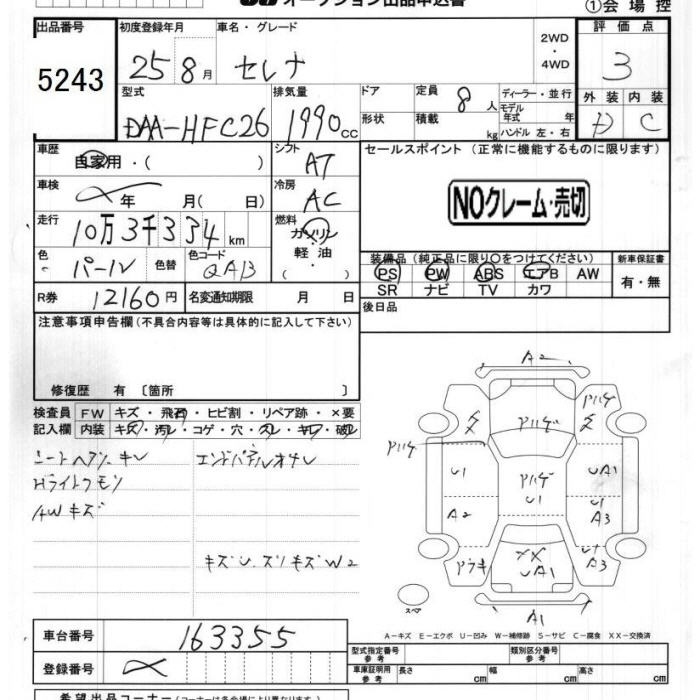 オークション出品申込書
①会場控
出品番号 初度登録年月 車名・グレード 2WD・4WD 評価点
5243 25 8月 セレナ 3
型式 排気量 ドア 定員 8人 ディーラー・並行 外装 内装
DAA-HFC26 1990cc 形状 積載 kg モデル年式 年 ハンドル 左・右 D C
車歴 自家用・( ) シフト AT セールスポイント (正常に機能するものに限ります)
車検 年 月( 日) 冷房 AC NOクレーム・売切
走行 10万3千334km 燃料 ガソリン 軽油・( )
色 パール 色替 色コード QAB 装備品 (純正品に限り○をつけてください) 新車保証書
PS PW ABS エアB AW 有・無
SR ナビ TV カワ
R券 12160円 名変通知期限 月 日 後日品
注意事項申告欄(不具合内容等は具体的に記入して下さい)
修復歴 有 〔箇所 〕
検査員 FW キズ・飛石・ヒビ割・リペア跡・×要
記入欄 内装 キズ・汚レ・コゲ・穴・スレ・キレ・破レ
エンドパネルオサレ
Hライトクモリ
AWキズ
キズU.ズリキズW2
A2
アハゲ
アハゲ
アハゲ
U1 UA1
アハゲ
U1
A2 U1
A3
XX
UA1
U1
A3
A1
スペア
A-キズ E-エクボ U-凹み W-補修跡 S-サビ C-腐食 XX-交換済
車台番号 163355
型式指定番号 参考 類別区分番号 参考
登録番号
車庫証明用 参考 長さ cm 幅 cm 高さ cm
希望出品コーナー (コーナーは各会場により異なります)